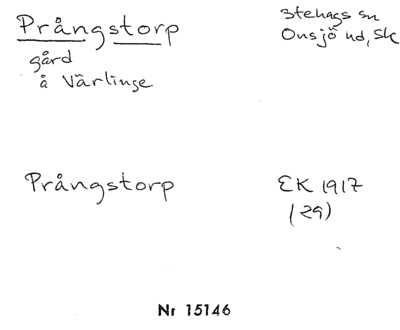 Prångstorp
gård
å Värlinge
Stehags sn
Onsjö hd, Sk
Prångstorp
EK 1917
(29)
Nr 15146